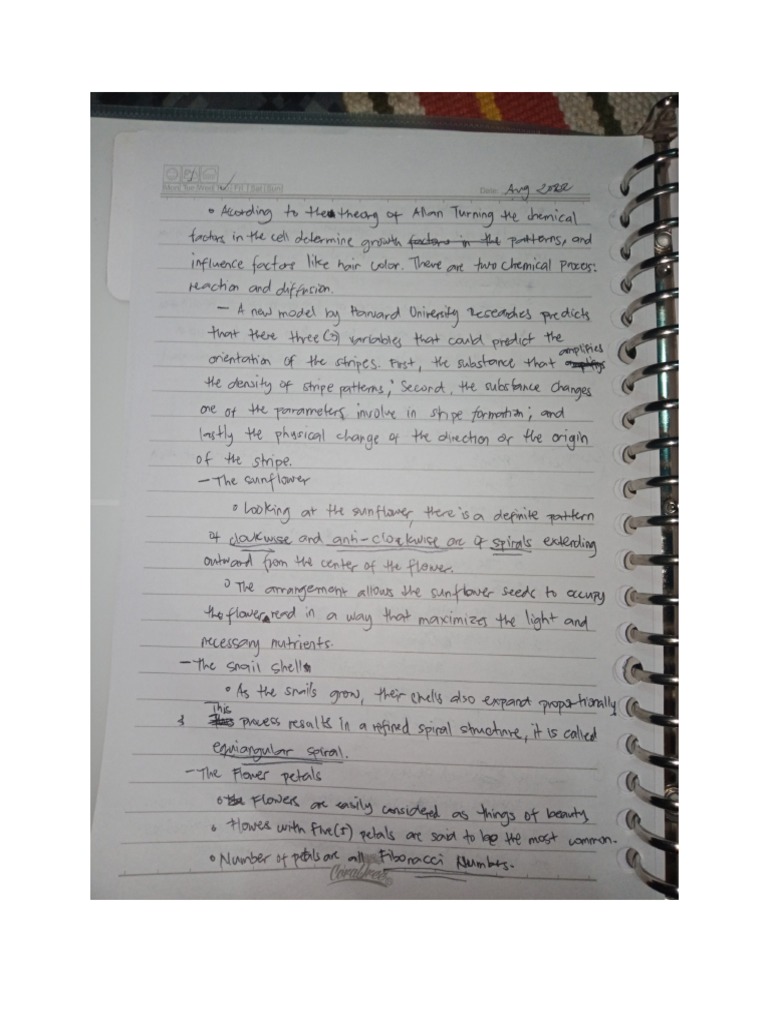 Mon Tue Wed Thu Fri Sat Sun
Date: Aug 2022
• Acording to the theory of Allan Turning the chemical
factors in the cell determine growth factors in the patterns, and
influence factors like hair color. There are two chemical process:
reaction and diffusion.
— A new model by Harvard University Researches predicts
that there three(3) variables that could predict the
orientation of the stripes. First, the substance that amplifies
the density of stripe patterns; Second, the substance changes
one of the parameters involve in stripe formation; and
lastly the physical change of the direction or the origin
of the stripe.
— The sunflower
• Looking at the sunflower, there is a definite pattern
of clockwise and anti-clockwise arc of spirals extending
outward from the center of the flower.
• The arrangement allows the sunflower seeds to occupy
the flower read in a way that maximizes the light and
necessary nutrients.
— The snail shell
• As the snails grow, their shells also expand proportionally
This process results in a refined spiral structure, it is called
equiangular spiral.
— The Flower petals
• Flowers are easily considered as things of beauty
• flowes with five(5) petals are said to be the most common.
• Number of petals are all Fibonacci Numbers.